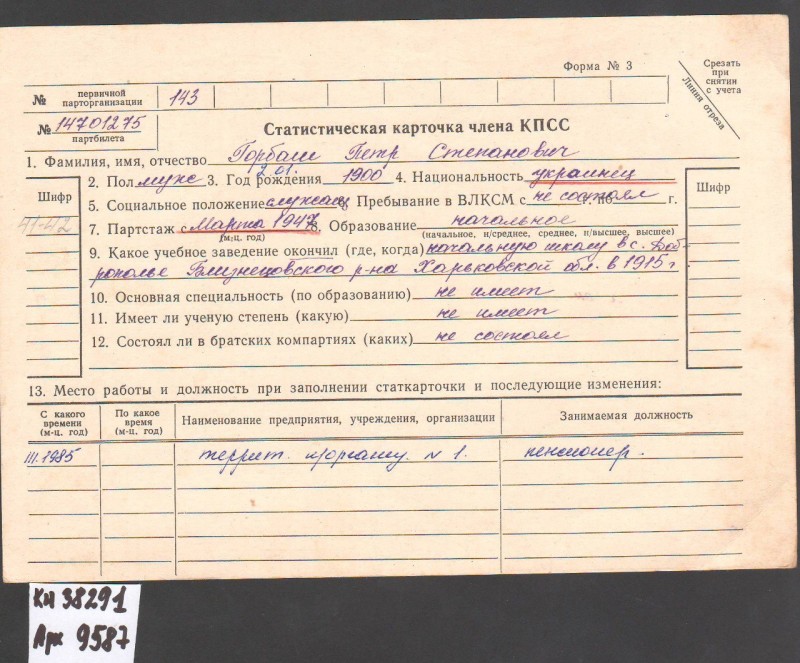 Форма № 3
Срезать при снятии с учета
Линия отреза
№ первичной парторганизации 143
№ 14701275
партбилета
Статистическая карточка члена КПСС
1. Фамилия, имя, отчество Горбаш Петр Степанович
2. Пол муж 3. Год рождения 2.01. 1900 4. Национальность украинец
Шифр
Шифр
41-42
5. Социальное положение служащ 6. Пребывание в ВЛКСМ с не состоял г.
7. Партстаж с Марта 1947 8. Образование начальное
(м-ц, год) (начальное, н/среднее, среднее, н/высшее, высшее)
9. Какое учебное заведение окончил (где, когда) начальную школу в с. Доб-
рополье Близнецовского р-на Харьковской обл. в 1915 г
10. Основная специальность (по образованию) не имеет
11. Имеет ли ученую степень (какую) не имеет
12. Состоял ли в братских компартиях (каких) не состоял
13. Место работы и должность при заполнении статкарточки и последующие изменения:
С какого времени (м-ц, год)
По какое время (м-ц, год)
Наименование предприятия, учреждения, организации
Занимаемая должность
III.1985 террит. п/организ. N 1. пенсионер.
КП 38291
Арх 9587